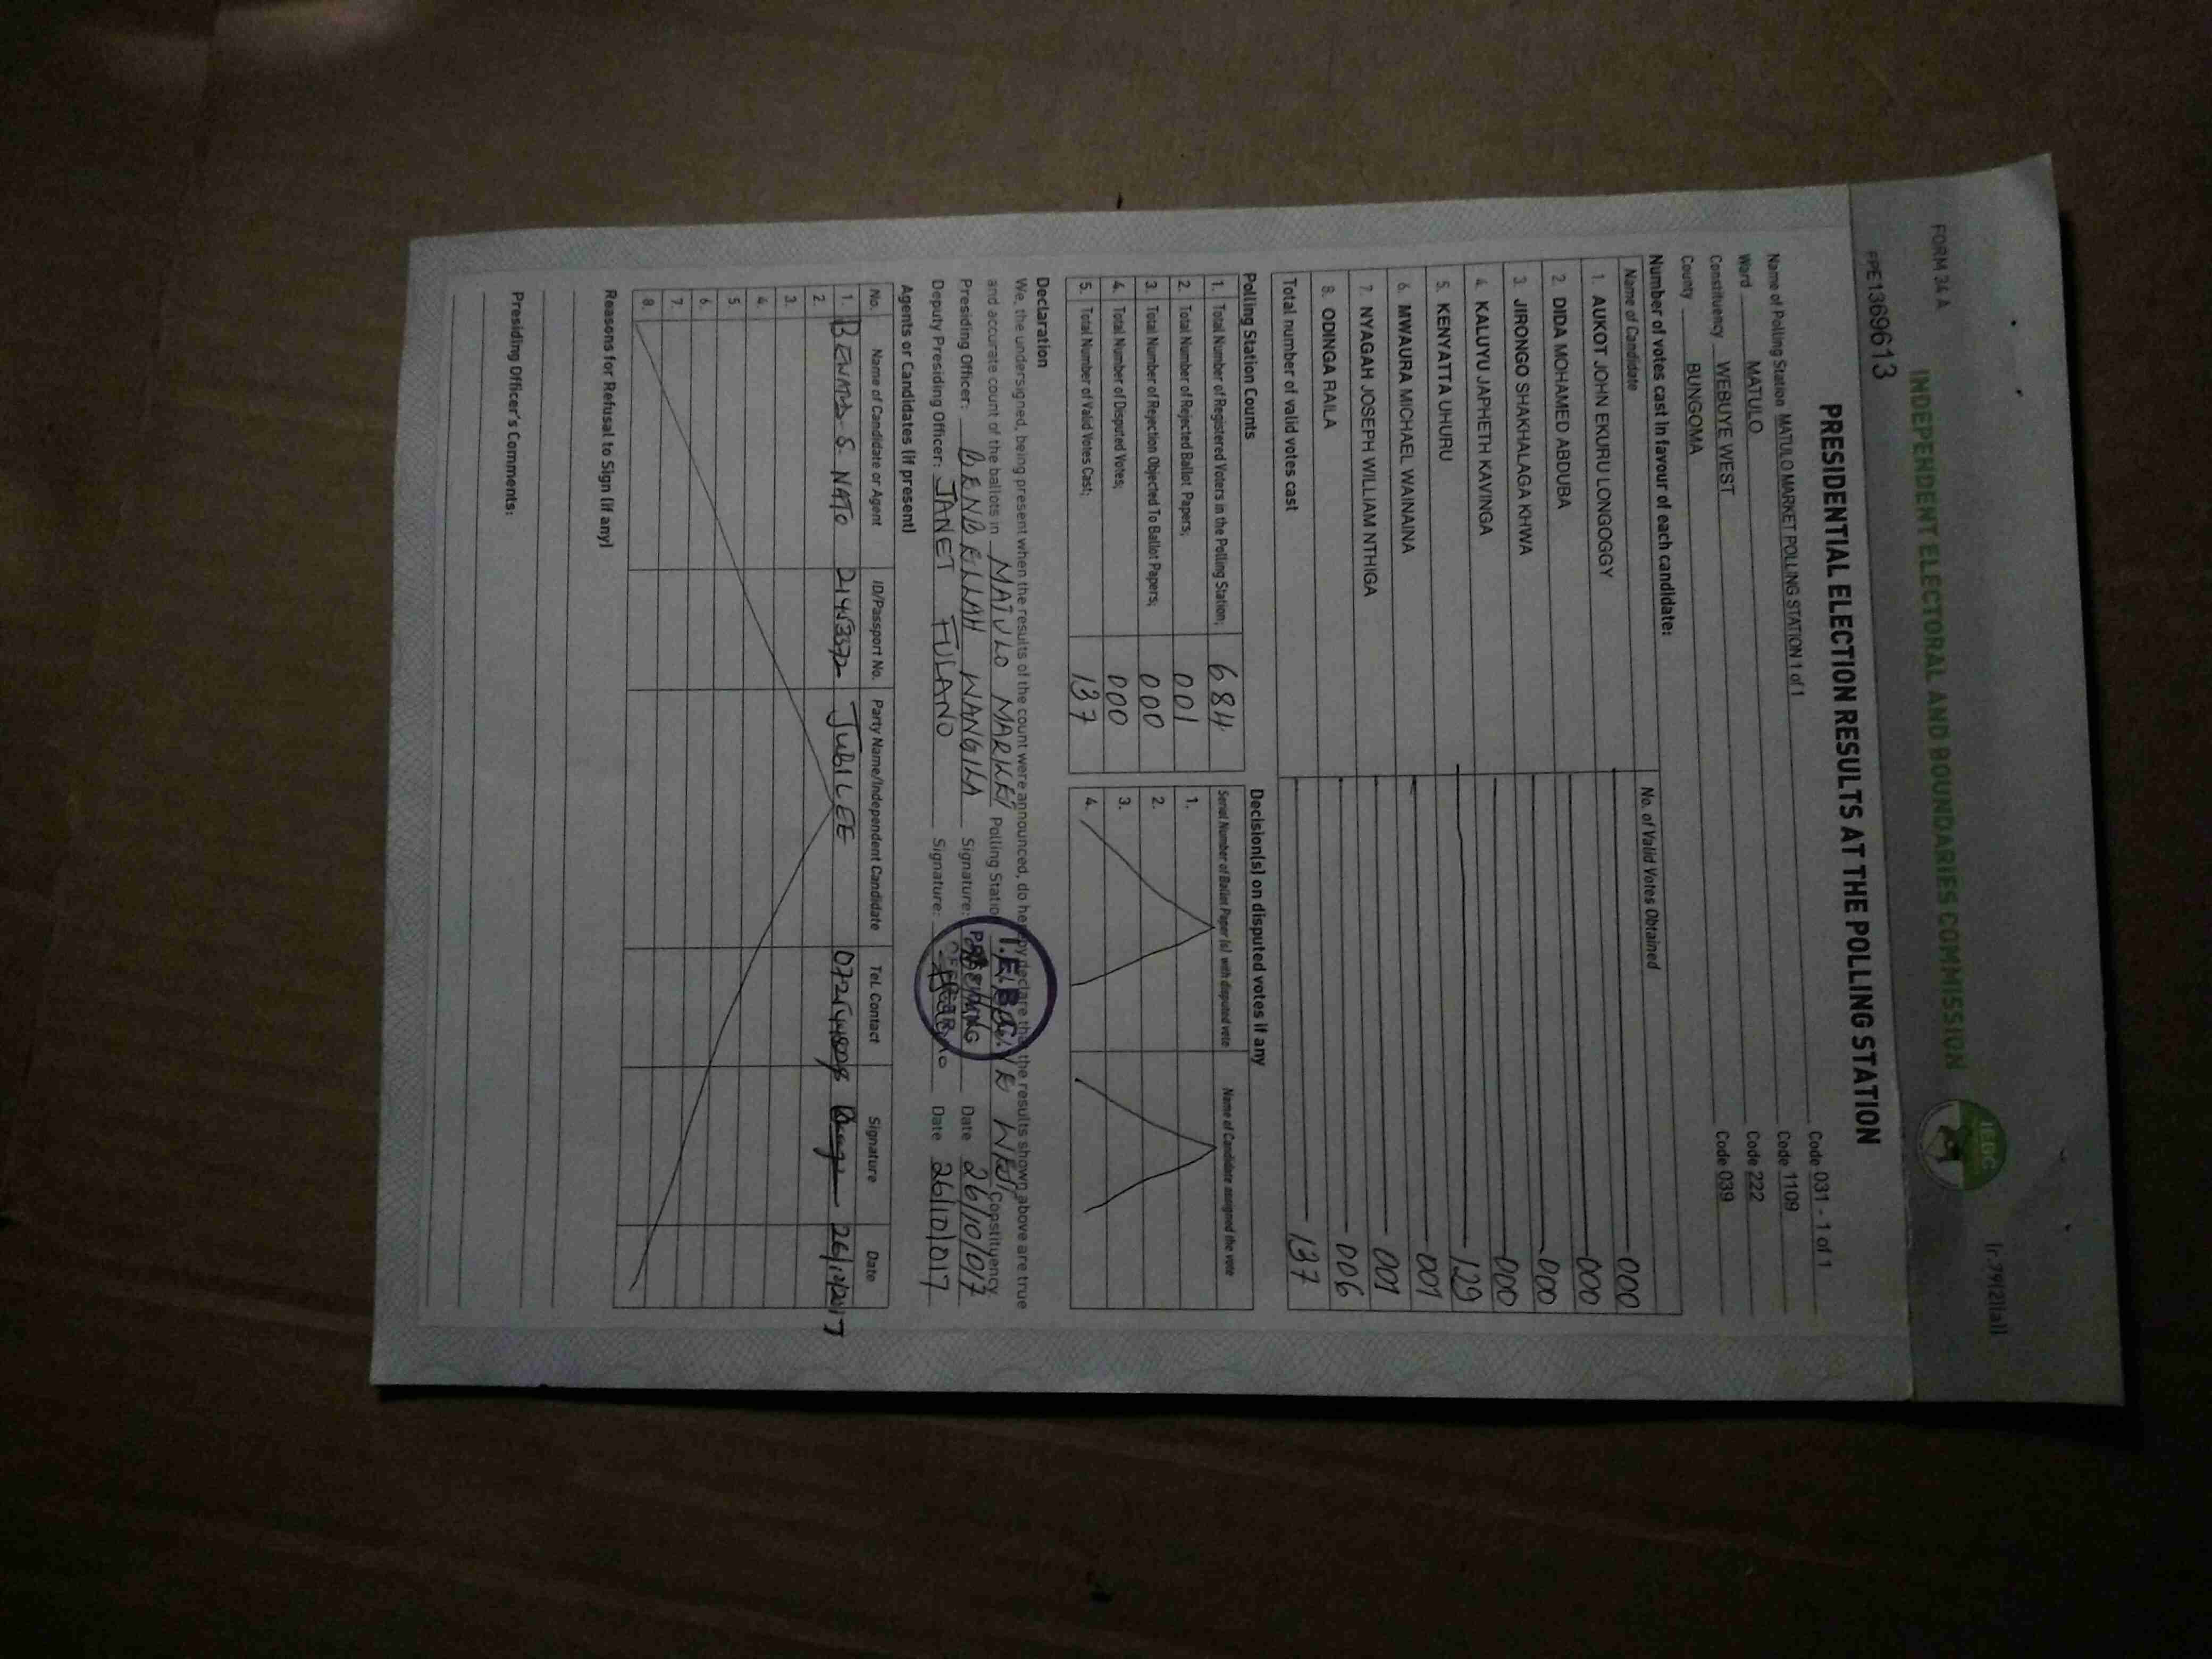 FORM 34 A
r.79(2)(a)
INDEPENDENT ELECTORAL AND BOUNDARIES COMMISSION
IEBC
FPE1369613
PRESIDENTIAL ELECTION RESULTS AT THE POLLING STATION
Name of Polling Station MATULO MARKET POLLING STATION 1 of 1 Code 031 - 1 of 1
Code 1109
Ward MATULO Code 222
Constituency WEBUYE WEST Code 039
County BUNGOMA
Number of votes cast in favour of each candidate:
Name of Candidate No. of Valid Votes Obtained
1. AUKOT JOHN EKURU LONGOGGY 000
2. DIDA MOHAMED ABDUBA 000
3. JIRONGO SHAKHALAGA KHWA 000
4. KALUYU JAPHETH KAVINGA 000
5. KENYATTA UHURU 129
6. MWAURA MICHAEL WAINAINA 001
7. NYAGAH JOSEPH WILLIAM NTHIGA 001
8. ODINGA RAILA 006
Total number of valid votes cast 137
Polling Station Counts
1. Total Number of Registered Voters in the Polling Station; 684
2. Total Number of Rejected Ballot Papers; 001
3. Total Number of Rejection Objected To Ballot Papers; 000
4. Total Number of Disputed Votes; 000
5. Total Number of Valid Votes Cast; 137
Decision(s) on disputed votes if any
Serial Number of Ballot Paper (s) with disputed vote Name of Candidate assigned the vote
1.
2.
3.
4.
Declaration
We, the undersigned, being present when the results of the count were announced, do hereby declare that the results shown above are true
and accurate count of the ballots in MATULO MARKET Polling Station WEST Constituency
Presiding Officer: WANGILA Signature: Date 26/10/017
Deputy Presiding Officer: JANET FULANO Signature: Date 26/10/017
I.E.B.C.
PRESIDING
OFFICER
Agents or Candidates (if present)
No. Name of Candidate or Agent ID/Passport No. Party Name/Independent Candidate Tel. Contact Signature Date
1. S. NATO JUBILEE 26/10/2017
2.
3.
4.
5.
6.
7.
8.
Reasons for Refusal to Sign (if any)
Presiding Officer's Comments: